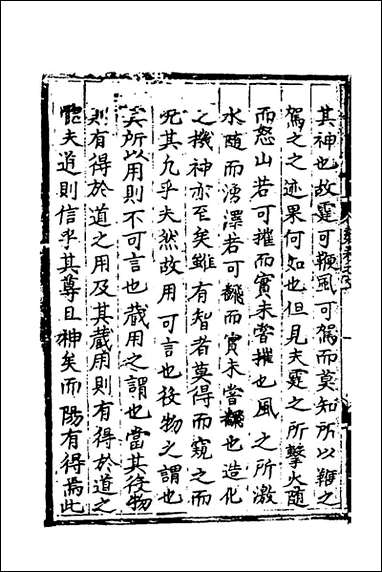 其神也故霆可鞭風可駕而莫知所以鞭之
駕之之迹果何如也但見夫霆之所擊火隨
而怒山若可摧而實未嘗摧也風之所激
水隨而湧澤若可飜而實未嘗飜也造化
之機神亦至矣雖有智者莫得而窺之而
況其凡乎夫然故用可言也役物之謂也
其所以用則不可言也蔵用之謂也當其役物
則有得於道之用及其蔵用則有得於道之
體夫道則信乎其尊且神矣而陽有得焉此